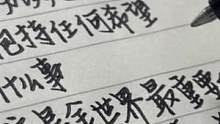 抱持任何希望
什么事
是全世界最重要